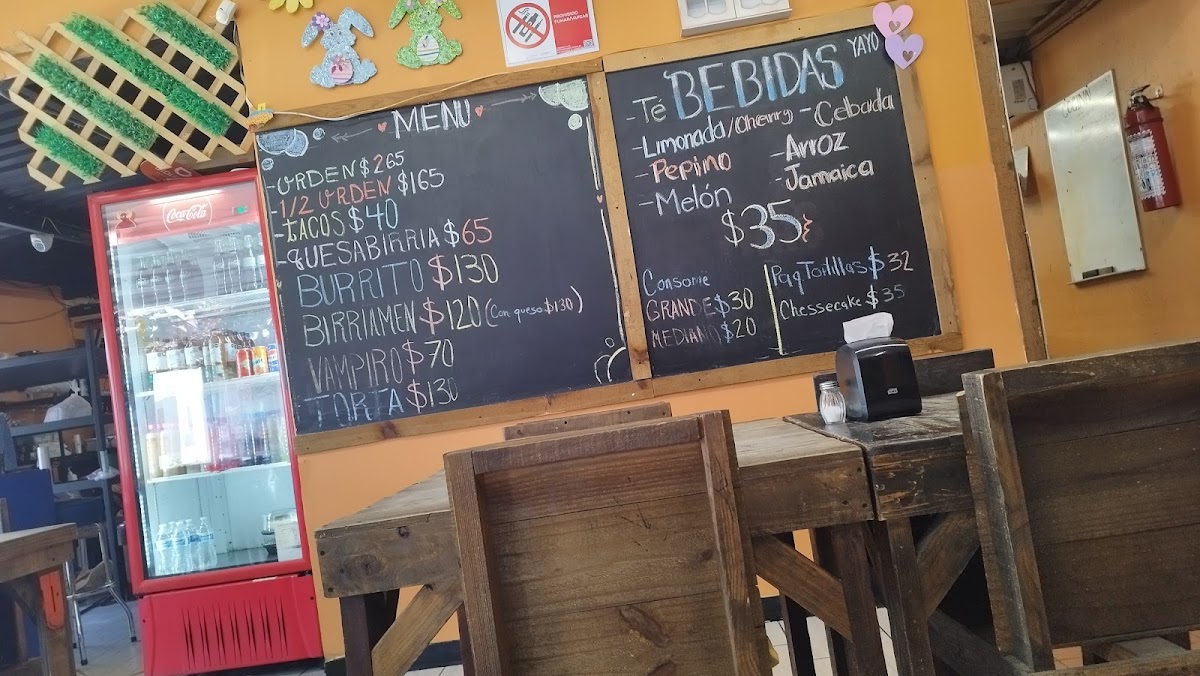 MENU
-ORDEN $265
-1/2 ORDEN $165
-TACOS $40
-QUESABIRRIA $65
BURRITO $130
BIRRIAMEN $120 (Con queso $130)
VAMPIRO $70
TORTA $130
BEBIDAS
YAYO
-Té
-Limonada/Cherry
-Pepino
-Melón
-Cebada
-Arroz
-Jamaica
$35
Consome
GRANDE $30
MEDIANO $20
Paq Tortillas $32
Chessecake $35
PROHIBIDO
FUMAR/VAPEAR
Coca-Cola